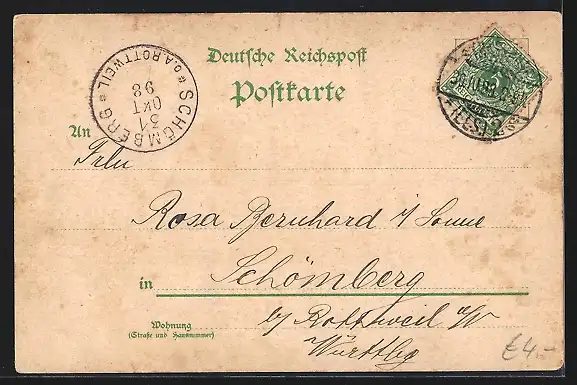 Deutsche Reichspost
Postkarte
SCHÖMBERG * O.A. ROTTWEIL *
31
OKT
98
An
Frln
Rosa Bernhard i/ Sonne
in Schömberg
b/ Rottweil a/N
Wohnung
(Straße und Hausnummer)
Württbg
€ 4.-